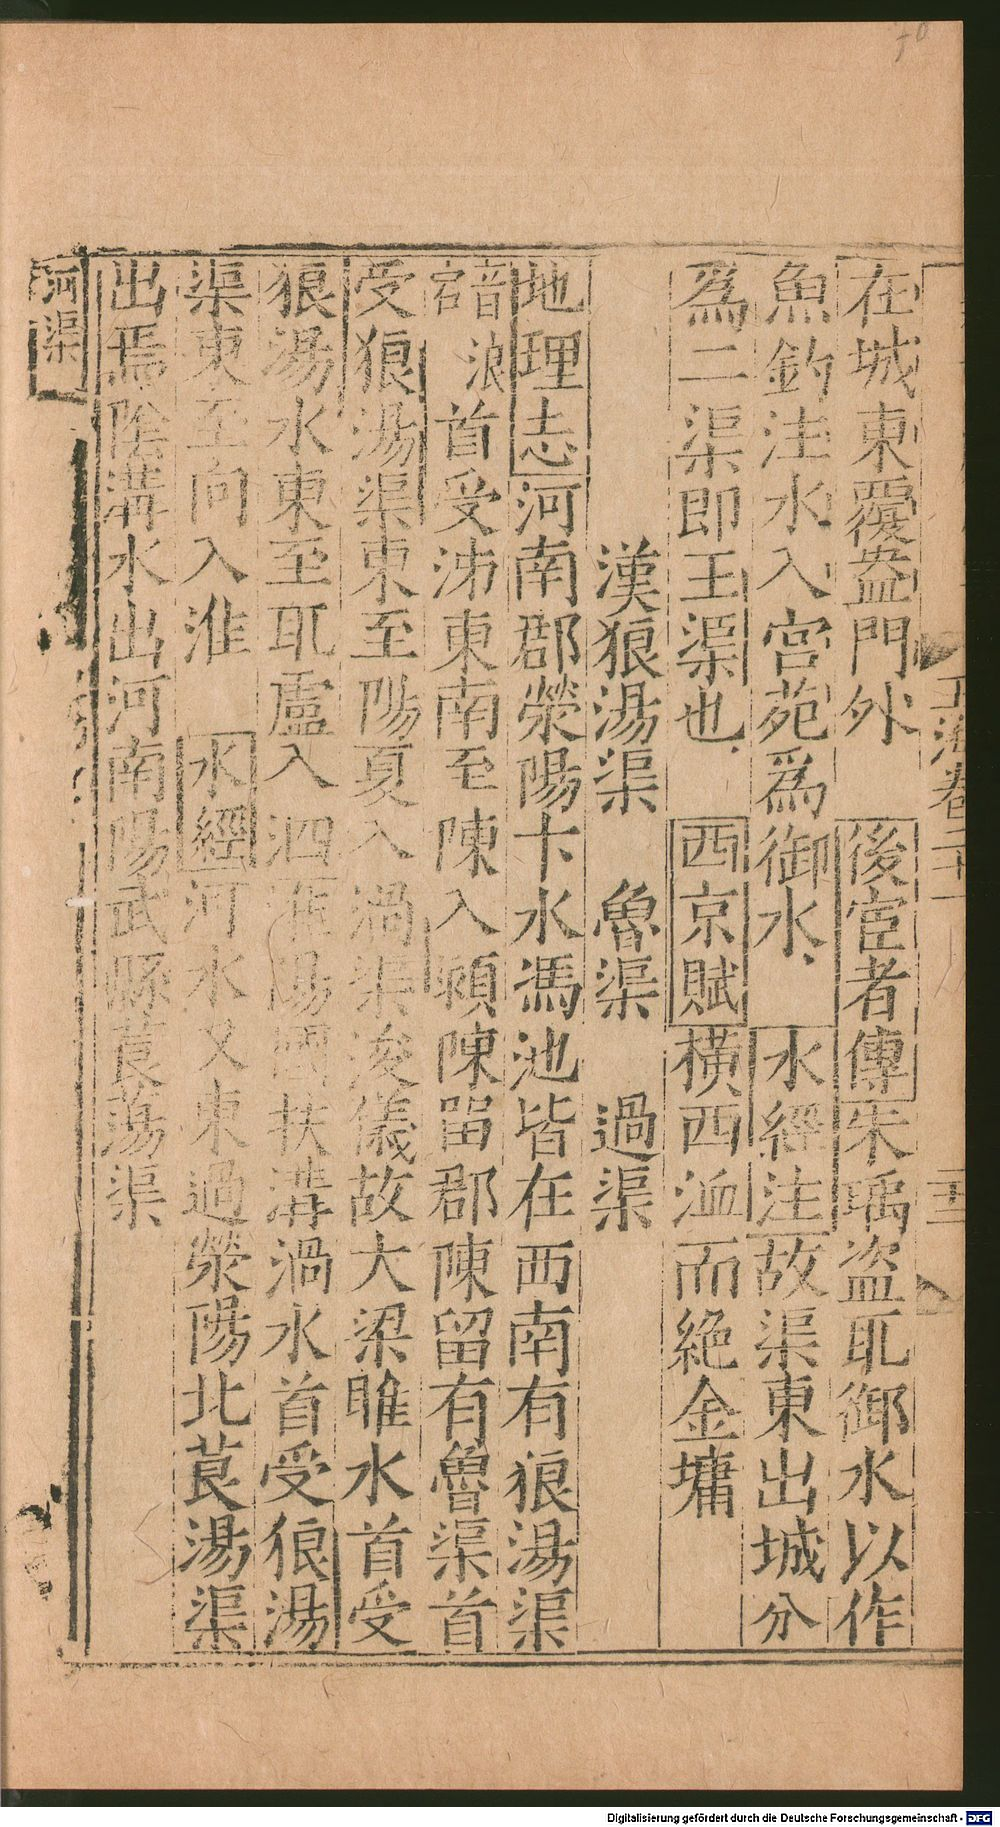 玉海卷二十一
在城東覆盎門外 後宦者傳朱瑀盗取御水以作
魚釣注水入宮苑爲御水 水經注故渠東出城分
爲二渠即王渠也 西京賦橫西洫而絶金墉
漢狼湯渠 魯渠 過渠
地理志河南郡滎陽卞水馮池皆在西南有狼湯渠
音浪宕首受泲東南至陳入潁陳留郡陳留有魯渠首
受狼湯渠東至陽夏入渦渠浚儀故大梁睢水首受
狼湯水東至取慮入泗淮陽國扶溝渦水首受狼湯
渠東至向入淮 水經河水又東過滎陽北莨湯渠
出焉陰溝水出河南陽武縣莨蕩渠
河渠
Digitalisierung gefördert durch die Deutsche Forschungsgemeinschaft - DFG